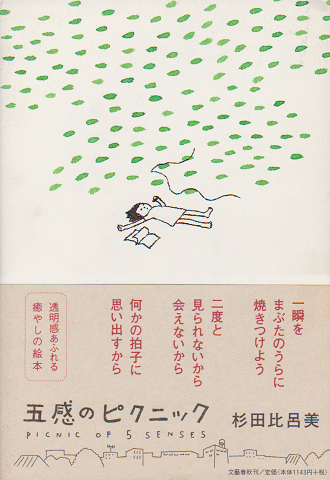 一瞬を
まぶたのうらに
焼きつけよう
二度と
見られないから
会えないから
何かの拍子に
思い出すから
透明感あふれる
癒やしの絵本
五感のピクニック
PICNIC OF 5 SENSES
杉田比呂美
文藝春秋刊／定価(本体1143円+税)